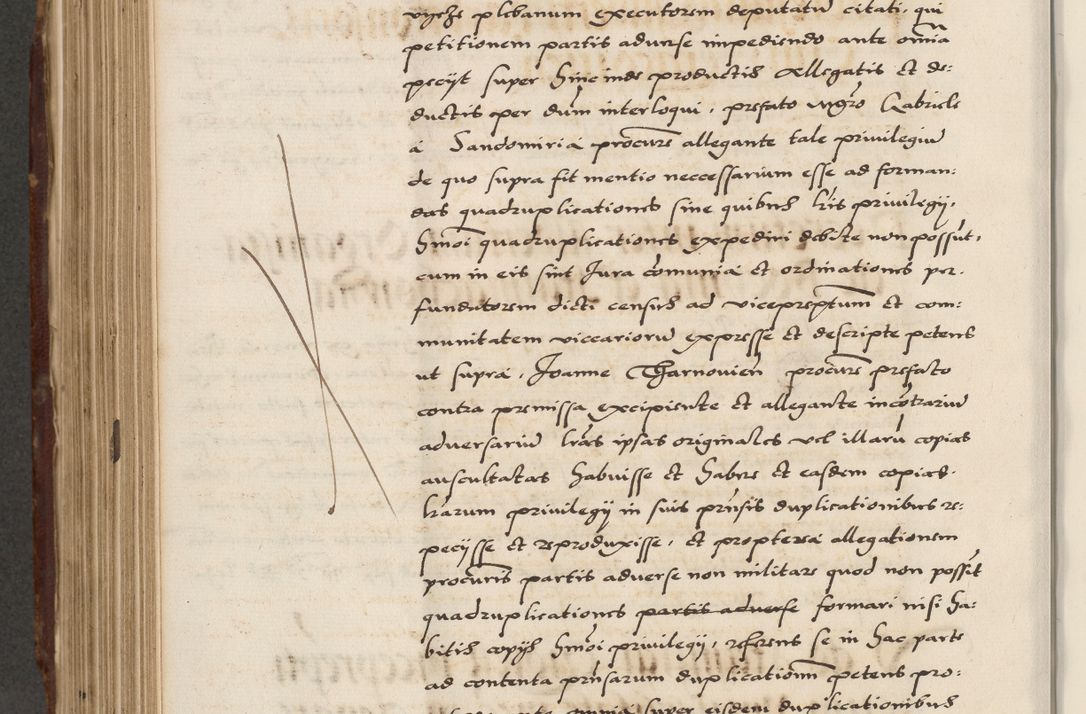 plebanum executorem deputatum citati, qui
petitionem partis adverse impediendo ante omnia
peciit super hincinde productis allegatis et de:
ductis per dnm interloqui, prefato mgro Gabriele
a Sandomiria procure allegante tale privilegiu
de quo supra fit mentio neccessarium esse ad forman:
das quadruplicationes sine quibus lris privilegij,
hmoi quadruplicationes expediri debite non possut,
cum in eis sint Jura comunia et ordinationes per
fundatorem dicti census ad viceprepositum et com:
munitatem viccariorum expresse et descripte petens
ut supra, Joanne Tharnovien procure prefato
contra premissa excipiente et allegante in cotrariu
adversariu lras ipsas originales vel illaru copias
auscultatas habuisse et habere et easdem copias
lrarum privilegij in suis pnsis duplicationibus re:
peciisse et reproduxisse, et propterea allegationem
procuris partis adverse non militare quod non possit
quadruplicationes partis adverse formari nisi ha:
bitis copijs hmoi privilegij, referens se in hac parte
ad contenta pnsarum duplicationum petens pro:
omnia super eisdem duplicationibus